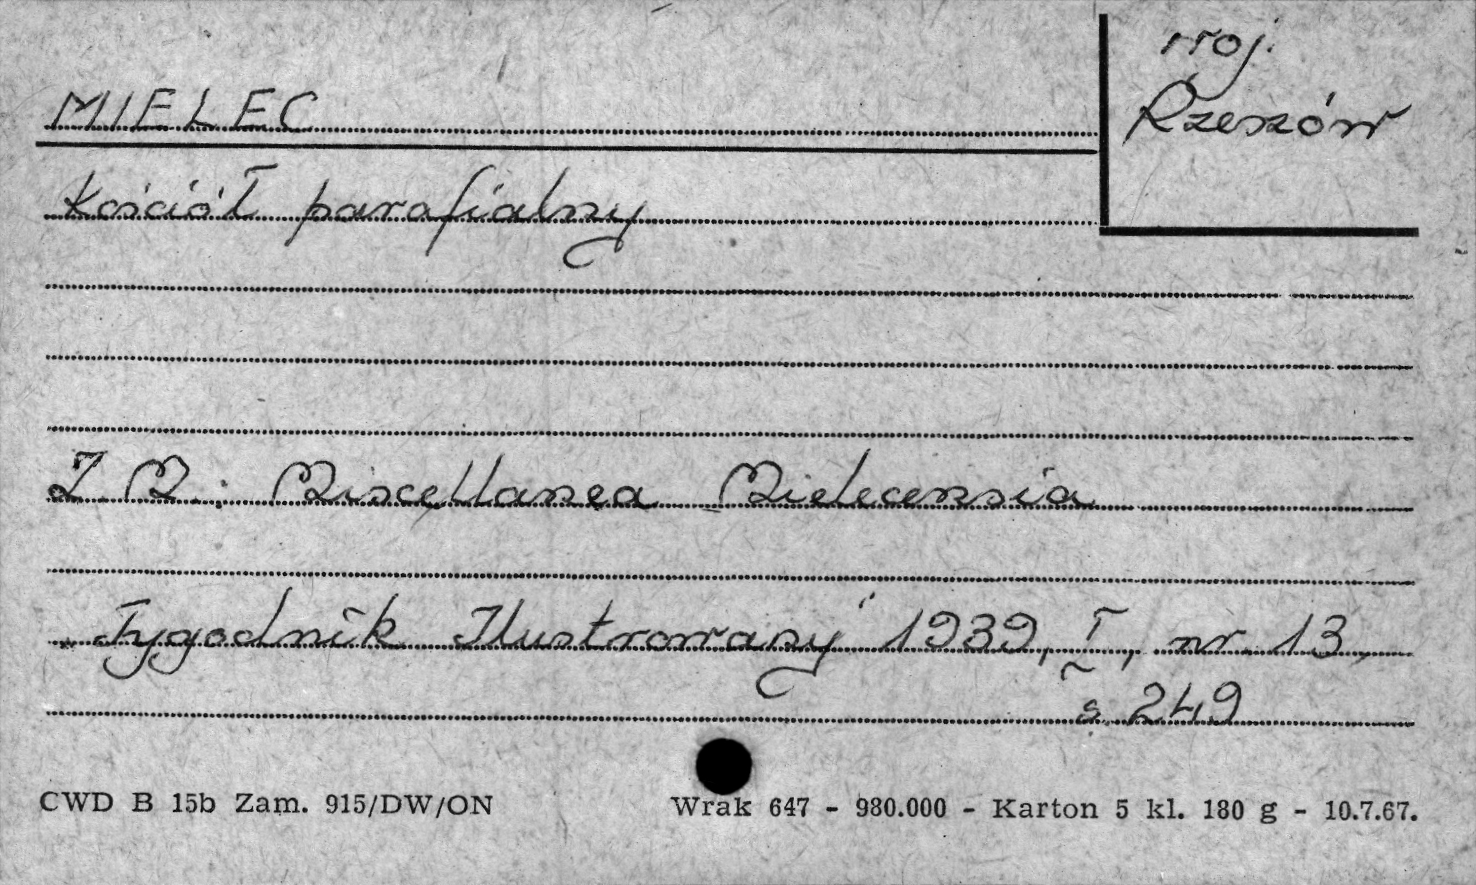 MIELEC
woj.
Rzeszów
Kościół parafialny
Z M. : Miscellanea Mielecensia
Tygodnik Ilustrowany 1939, I, nr. 13,
s. 249
CWD B 15b Zam. 915/DW/ON
Wrak 647 - 980.000 - Karton 5 kl. 180 g - 10.7.67.